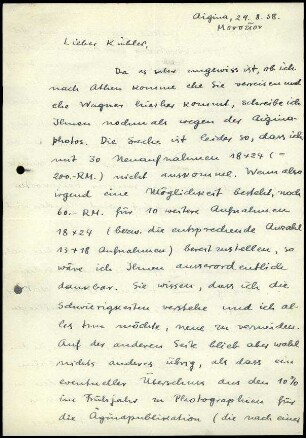 Aigina, 29.8.38.
Lieber Kübler,
Da es sehr ungewiss ist, ob ich
nach Athen komme ehe Sie verreisen und
ehe Wagner hierher kommt, schreibe ich
Ihnen nochmals wegen der Aigina-
photos. Die Sache ist leider so, dass ich
mit 30 Neuaufnahmen 18x24 (=
200.-RM.) nicht auskomme. Wenn also
irgend eine Möglichkeit besteht, noch
60.-RM. für 10 weitere Aufnahmen
18x24 (bezw. die entsprechende Anzahl
13+18 Aufnahmen) bereitzustellen, so
wäre ich Ihnen ausserordentlich
dankbar. Sie wissen, dass ich die
Schwierigkeiten verstehe und ich al-
les tun möchte, neue zu vermeiden.
Auf der anderen Seite blieb aber wohl
nichts anderes übrig, als dass ein
eventueller Überschuss aus den 10%
im Frühjahr zu Photographien für
die Äginapublikation (die nach eines